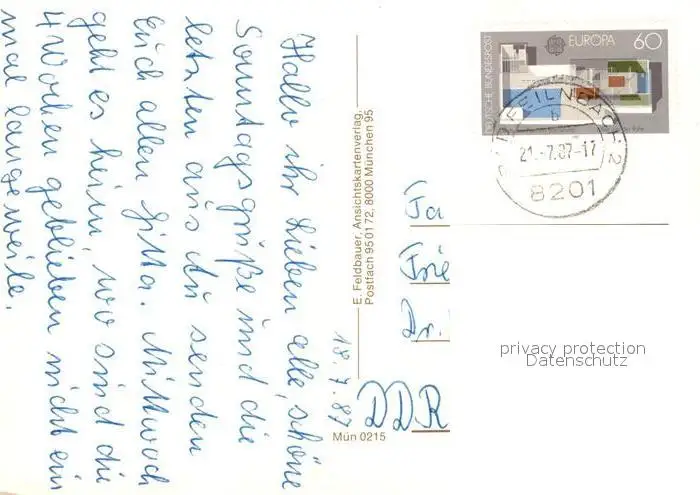 Hallo ihr Lieben alle, schöne
Sonntagsgrüße und die
letzten aus Au senden
Euch allen Gitta. Mittwoch
geht es heim, wo sind die
4 Wochen geblieben nicht ein
mal langeweile.
18.7.87
E. Feldbauer, Ansichtskartenverlag,
Postfach 95 01 72, 8000 München 95
Mün 0215
DEUTSCHE BUNDESPOST
EUROPA 60
21.-7.87-17
8201
Fa
Dr.
DDR
privacy protection
Datenschutz